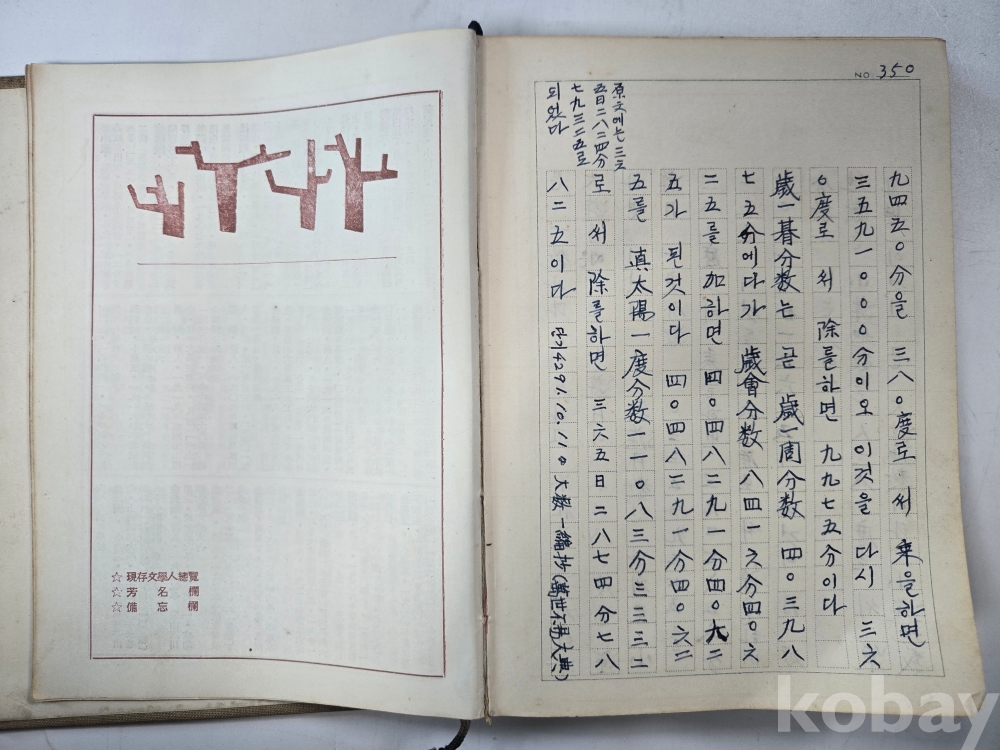 ☆ 現存文學人總覽
☆ 芳名欄
☆ 備忘欄
NO. 350
原文에는 三六
五日二八二四分
七九三二五로
되었다
九四五〇分을 三八〇度로 써 乘을하면
三五九一〇〇〇分이오 이것을 다시 三六
〇度로 써 除를하면 九九七五分이다
歲一朞分数는 곧 歲一周分数 四〇三九八
七五分에다가 歲會分数 八四一六分四〇六
二五를 加하면 四〇四八二九一分四〇六二
五가 된것이다 四〇四八二九一分四〇六二
五를 眞太陽一度分数一一〇八三分三三三二
로 써 除를하면 三六五日二八七四分七八
八二五이다 단기4291.10.11日 大数一編抄(萬世不易大典)
kobay